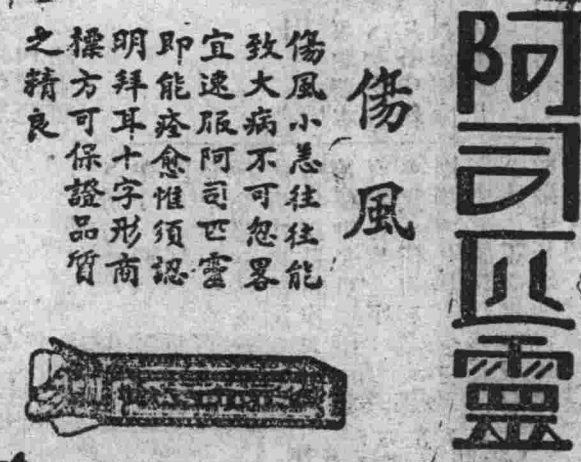 阿司匹靈
傷風
傷風小恙往往能
致大病不可忽畧
宜速服阿司匹靈
即能痊愈惟須認
明拜耳十字形商
標方可保證品質
之精良